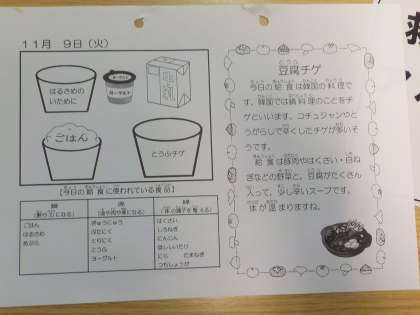 11月 9日(火)
はるさめの
いために
ヨーグルト
ごはん
とうふチゲ
【今日の給食に使われている食品】
黄 赤 緑
(熱や力になる) (血や肉や骨になる) (体の調子を整える)
ごはん
はるさめ
あぶら
ぎゅうにゅう
ぶたにく
とりにく
とうふ
ヨーグルト
はくさい
しろねぎ
にんじん
ほししいたけ
にら たまねぎ
つちしょうが
豆腐チゲ
今日の給食は韓国の料理で
す。韓国では鍋料理のことをチ
ゲといいます。コチュジャンやと
うがらしで辛くしたチゲが多いそ
うです。
給食は豚肉やはくさい・白ね
ぎなどの野菜と、豆腐がたくさん
入って、少し辛いスープです。
体が温まりますね。